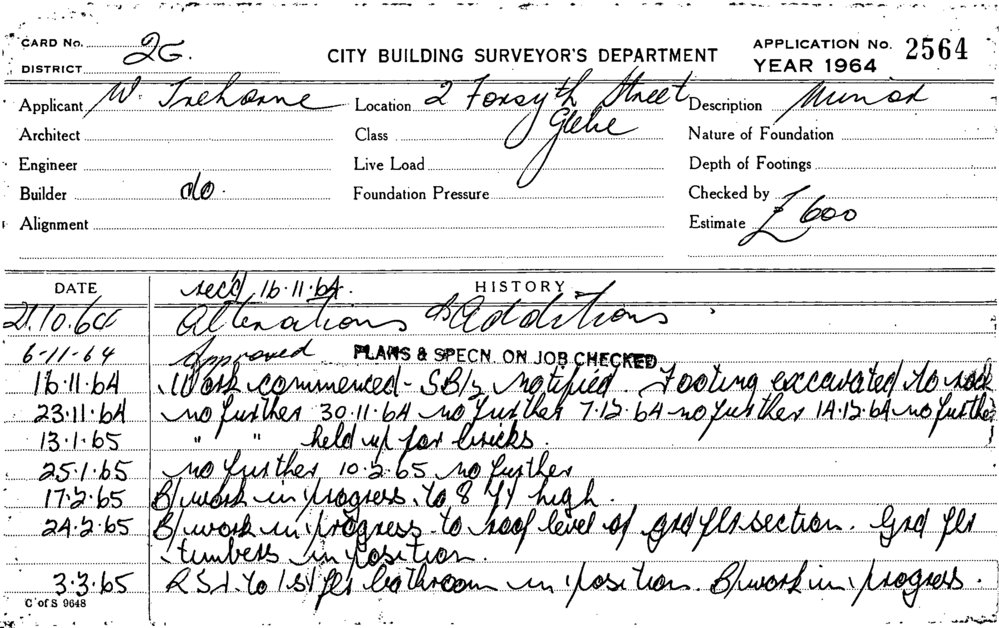 CARD No.
2G.
DISTRICT
CITY BUILDING SURVEYOR'S DEPARTMENT
APPLICATION No. 2564
YEAR 1964
Applicant W. Trehorne
Location 2 Forsyth Street
Glebe
Description Minor
Architect
Class
Nature of Foundation
Engineer
Live Load
Depth of Footings
Builder do.
Foundation Pressure
Checked by
Alignment
Estimate £600
DATE
HISTORY
recd 16.11.64.
21.10.64 Alterations & Additions
6-11-64 Approved PLANS & SPECN. ON JOB CHECKED
16.11.64 Work commenced - notified. Footing excavated to rock
23.11.64 no further 30.11.64 no further 7.12.64 no further 14.12.64 no further
13.1.65 " " held up for bricks.
25.1.65 no further 10.2.65 no further
17.2.65 B/work in progress to 8 ft high.
24.2.65 B/work in progress to roof level of grd flr section. Grd flr
timbers in position.
3.3.65 R.S.J. to 1st flr bathroom in position. B/work in progress.
C of S 9648